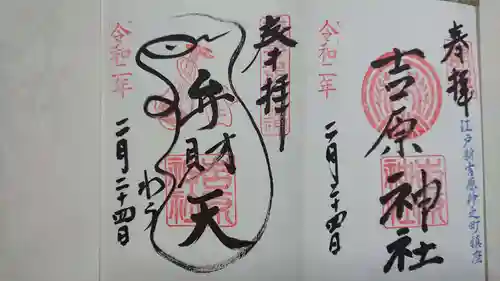 奉拝
江戸新吉原仲之町鎮座
吉原神社
令和二年
二月二十四日
奉拝
弁財天
令和二年
二月二十四日